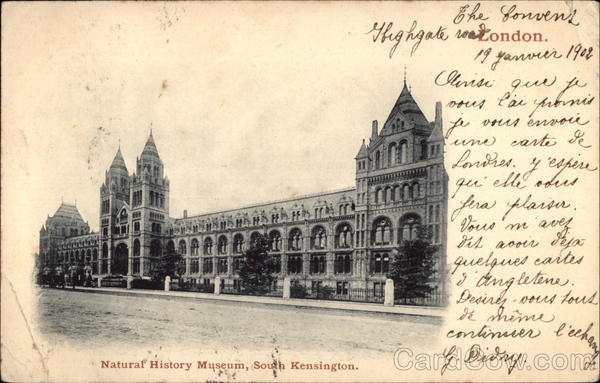 The Convent
Highgate road
London.
19 janvier 1902
Ainsi que je
vous l'ai promis
je vous envoie
une carte de
Londres. j'espère
qui elle vous
fera plaiser.
Vous m'avez
dit avoir déjà
quelques cartes
d'Angletene.
Desirez-vous tous
de même
continuer l'echange
Natural History Museum, South Kensington.
CardCow.com